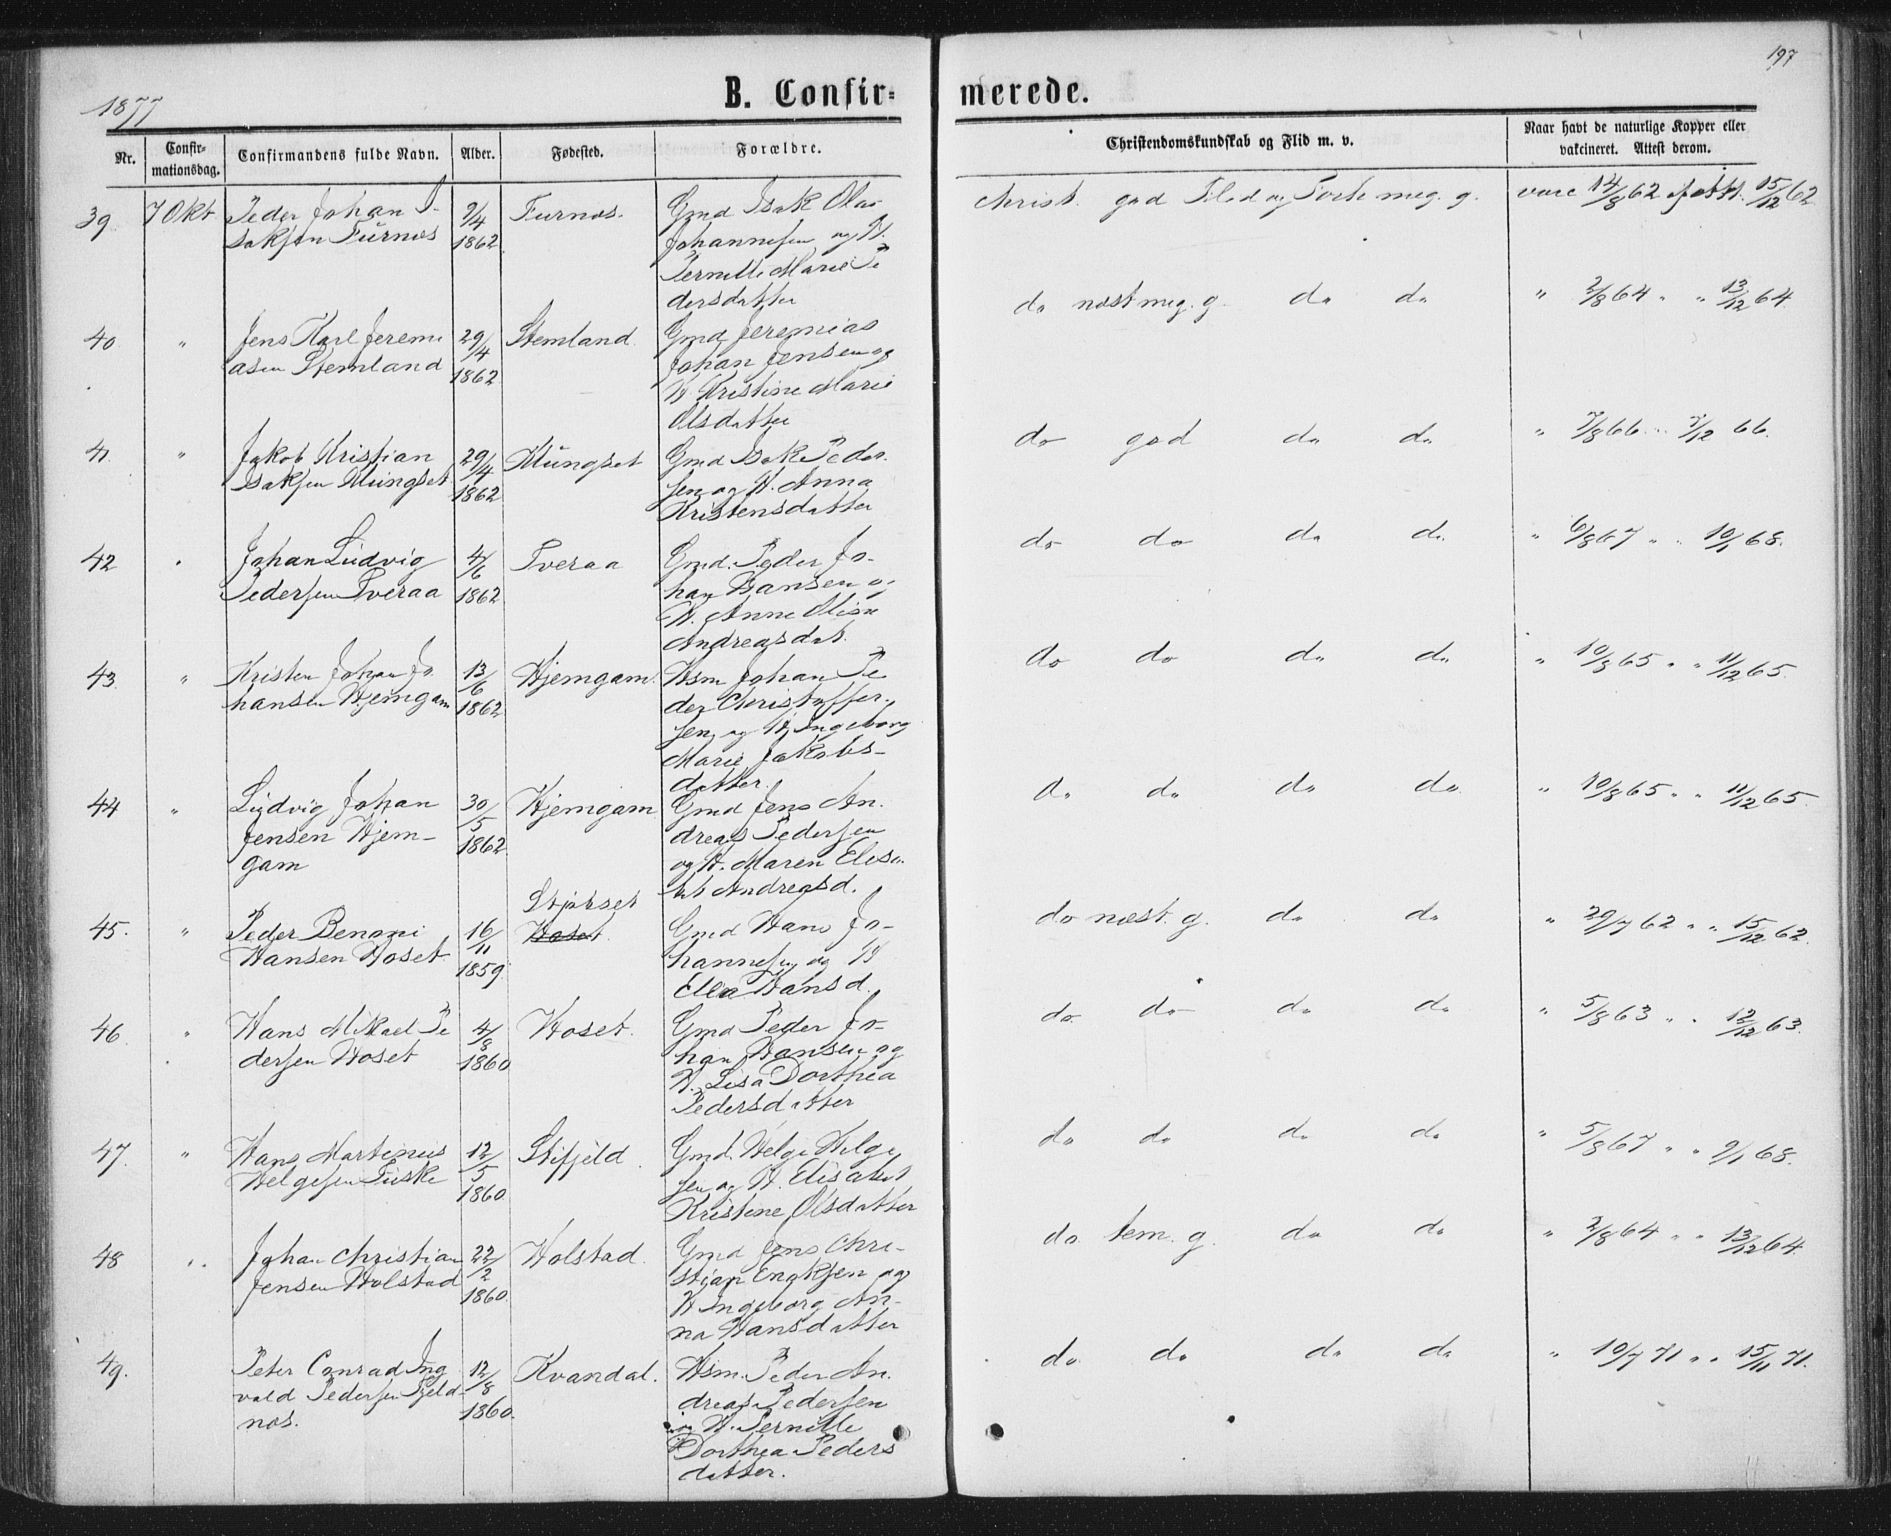 197
1877
B. Confir=
merede.
Nr.
Confir-
mationsdag.
Confirmandens fulde Navn.
Alder.
Fødested.
Forældre.
Christendomskundskab og Flid m. v.
Naar havt de naturlige Kopper eller
vakcineret. Attest derom.
39
7 Okt
Peder Johan I-
saksen Furnes
9/4
1862
Furnes.
Gmd Isak Olai
Johannesen og H.
Pernille Marie Pe
dersdatter
Christ. god Flid og meg. g.
vacc 14/8 62 15/12 62
40
"
Jens Karl Jeremi
asen Stemland
29/4
1862
Stemland
Gmd Jeremias
Johan Jensen og
H. Kristine Marie
Olsdatter
do næst meg. g. do do
" 2/8 64 " " 13/12 64
41.
"
Jakob Kristian
Isaksen Mungset
29/4
1862
Mungset
Gmd Isak Peder
sen og H. Anna
Kristensdatter
do god do do
" 7/8 66 " 7/12 66.
42
"
Johan Ludvig
Pedersen Tveraa
4/6
1862
Tveraa
Gmd. Peder Jo-
han Hansen og
H. Anne Oline
Andreasdat.
do do do do
" 6/8 67 " " 10/1 68.
43
"
Kristen Johan Jo
hansen Hjemgam
13/6
1862
Hjemgam.
Hsm Johan Pe
der Christoffer
sen og H. Ingeborg
Marie Jakobs-
datter.
do do do do
" 10/8 65 " " 11/12 65.
44
"
Ludvig Johan
Jensen Hjem-
gam
30/5
1862
Hjemgam
Gmd Jens An.
dreas Pedersen
og H. Maren Elisa
bet Andreasd.
do do do do
" 10/8 65 " " 11/12 65.
45.
"
Peder Benoni
Hansen Hoset
16/11
1859
Stjorset
Hoset.
Gmd Hans Jo-
hannesen og H
Ella Hansd.
do næst. g. do do
" 29/7 62 " " 15/12 62.
46
"
Hans Mikael Pe
dersen Hoset
4/8
1860
Hoset.
Gmd Peder Jo-
han Hansen og
H. Lisa Dorthea
Pedersdatter
do do do do
" 5/8 63 " " 12/12 63.
47.
"
Hans Martinus
Helgesen Fiske
12/5
1860
Stifjeld
Gmd. Helge Helge
sen og H. Elisabet
Kristine Olsdatter
do do do do
" 5/8 67 " " 9/1 68.
48
"
Johan Christian
Jensen Holstad
22/2
1860.
Holstad.
Gmd Jens Chri-
stian Enoksen og
H Ingeborg An-
na Hansdatter
do tem. g. do do
" 2/8 64 " " 13/12 64.
49.
Peter Conrad Ing
vald Pedersen Fjeld
nes.
12/8
1860.
Kvandal.
Hsm. Peder An.
dreas Pedersen
og H. Pernille
Dorthea Peders
datter.
do do do do
" 10/7 71 " " 15/11 71.